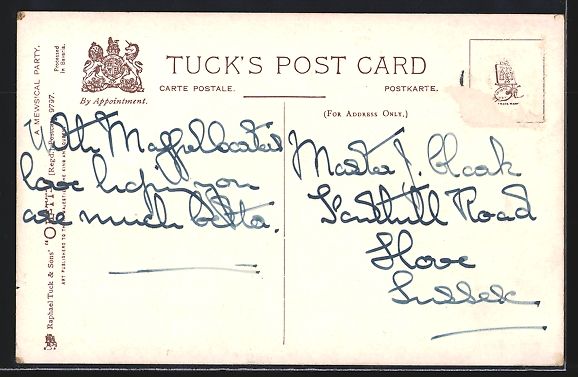 TUCK'S POST CARD
CARTE POSTALE.
POSTKARTE.
By Appointment.
(FOR ADDRESS ONLY.)
A MEWSICAL PARTY.
Processed
in Bavaria.
Raphael Tuck & Sons' "OILETTE" [Regd.] Postcard 9797.
ART PUBLISHERS TO THEIR MAJESTIES THE KING AND QUEEN
TRADE MARK
With
love hoping you
are much better.
Master J. Cloak
Road
Hove
Sussex